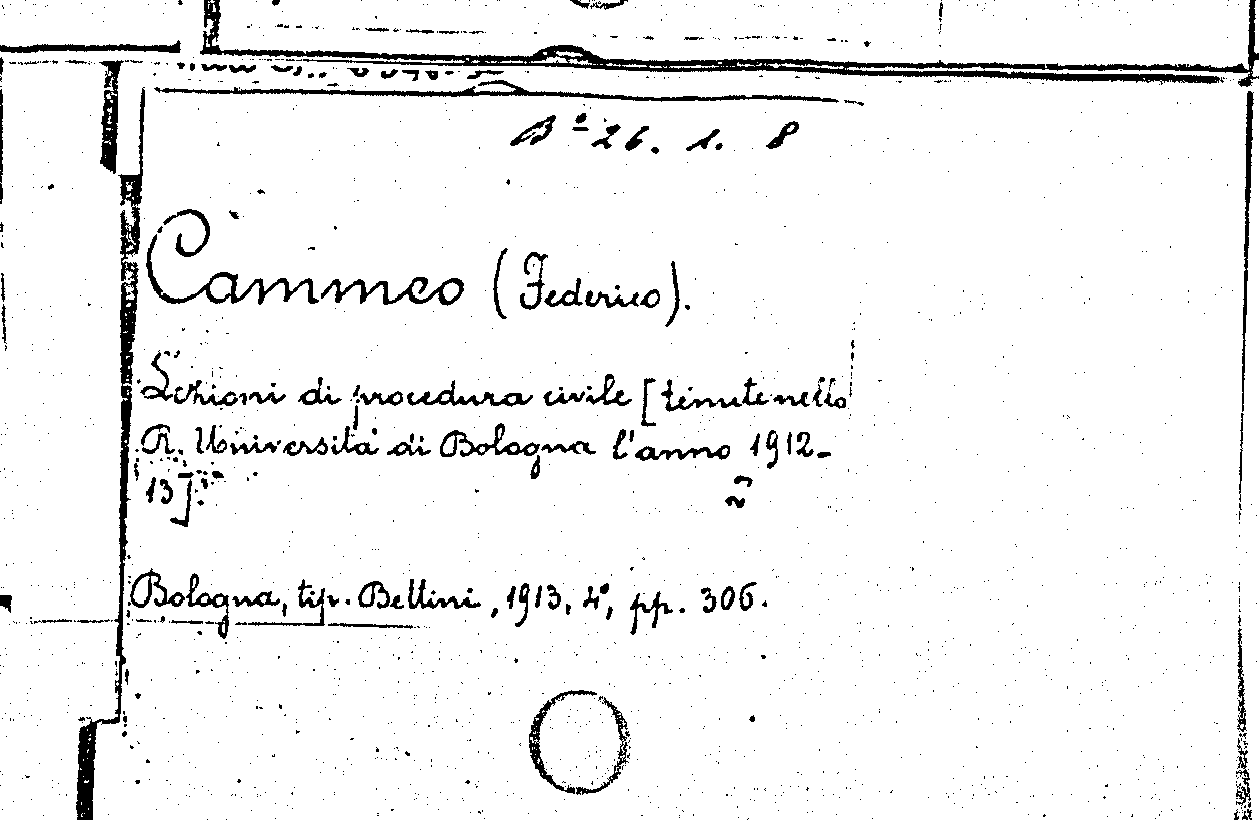 Bº 26. 1. 8
Cammeo (Federico).
Lezioni di procedura civile [tenute nella
R. Università di Bologna l'anno 1912-
13].
Bologna, tip. Bettini, 1913, 4º, pp. 306.